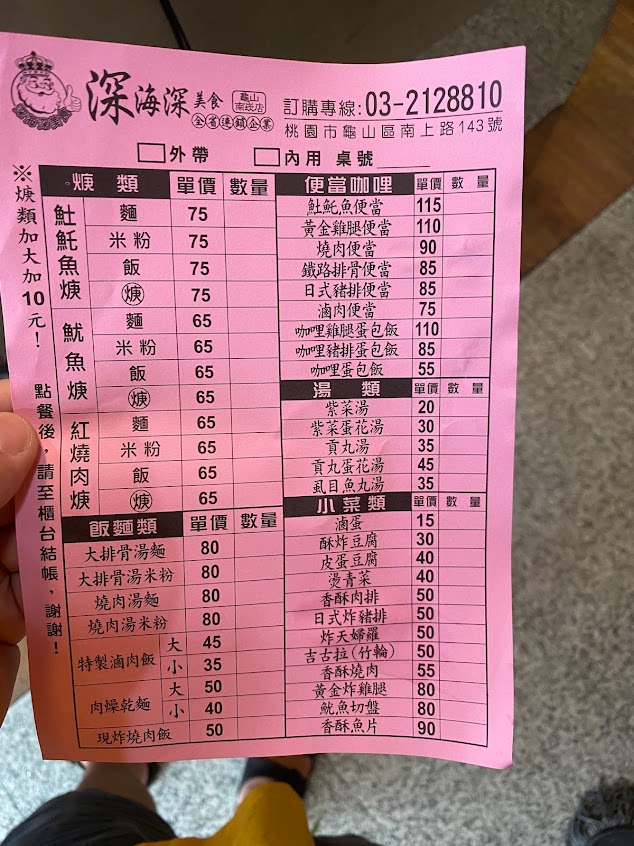 深海深美食 龜山南崁店
全省連鎖企業
訂購專線:03-2128810
桃園市龜山區南上路143號
□外帶 □內用 桌號
※焿類加大加10元！ 點餐後，請至櫃台結帳，謝謝！
焿類 單價 數量
魠魠魚焿
麵 75
米粉 75
飯 75
焿 75
魷魚焿
麵 65
米粉 65
飯 65
焿 65
紅燒肉焿
麵 65
米粉 65
飯 65
焿 65
飯麵類 單價 數量
大排骨湯麵 80
大排骨湯米粉 80
燒肉湯麵 80
燒肉湯米粉 80
特製滷肉飯 大 45
小 35
肉燥乾麵 大 50
小 40
現炸燒肉飯 50
便當咖哩 單價 數量
魠魠魚便當 115
黃金雞腿便當 110
燒肉便當 90
鐵路排骨便當 85
日式豬排便當 85
滷肉便當 75
咖哩雞腿蛋包飯 110
咖哩豬排蛋包飯 85
咖哩蛋包飯 55
湯類 單價 數量
紫菜湯 20
紫菜蛋花湯 30
貢丸湯 35
貢丸蛋花湯 45
虱目魚丸湯 35
小菜類 單價 數量
滷蛋 15
酥炸豆腐 30
皮蛋豆腐 40
燙青菜 40
香酥肉排 50
日式炸豬排 50
炸天婦羅 50
吉古拉(竹輪) 50
香酥燒肉 55
黃金炸雞腿 80
魷魚切盤 80
香酥魚片 90